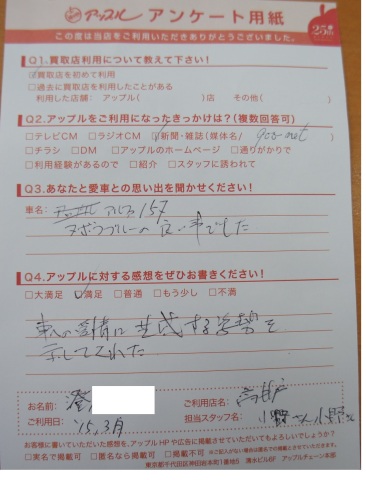 アップル アンケート用紙
25th
この度は当店をご利用いただきありがとうございました。
Q1.買取店利用について教えて下さい!
☑買取店を初めて利用
□過去に買取店を利用したことがある
利用した店舗: アップル( )店 その他( )
Q2.アップルをご利用になったきっかけは?(複数回答可)
□テレビCM □ラジオCM ☑新聞・雑誌(媒体名/ goo-net
□チラシ □DM □アップルのホームページ □通りがかりで
□利用経験があるので □紹介 □スタッフに誘われて
Q3.あなたと愛車との思い出を聞かせください!
車名: アルファ157
ヌボラブルーの良い車でした
Q4.アップルに対する感想をぜひお書きください!
□大満足 ☑満足 □普通 □もう少し □不満
車への愛情に共感する姿勢を
示してくれた
お名前: 澄
ご利用店名: 高井戸
ご利用日: '15.3月
担当スタッフ名: 小野さん
お客様に書いていただいた感想を、アップルHPや広告に掲載させていただいてもよろしいでしょうか?
□実名で掲載可 □匿名なら掲載可 □掲載不可 ※ご記入がない場合は匿名での掲載とさせていただきます。
東京都千代田区神田岩本町1番地5 清水ビル8F アップルチェーン本部